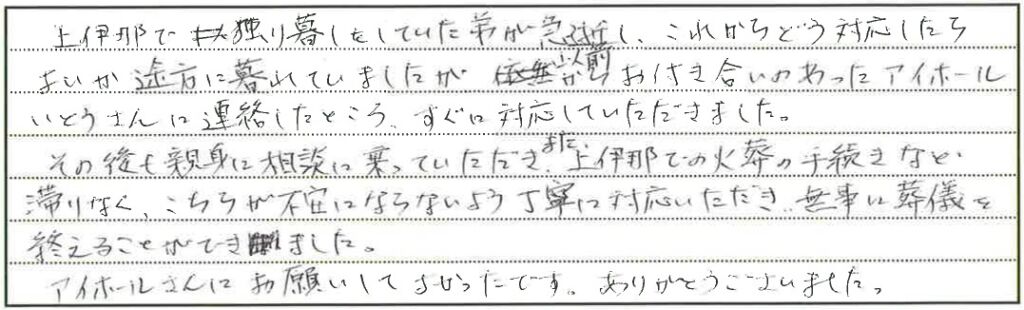 上伊那で独り暮しをしていた弟が急逝し、これからどう対応したら
よいか途方に暮れていましたが以前からお付き合いのあったアイホール
いとうさんに連絡したところ、すぐに対応していただきました。
その後も親身に相談に乗っていただき、また、上伊那での火葬の手続きなど
滞りなく、こちらが不安にならないよう丁寧に対応いただき、無事に葬儀を
終えることができました。
アイホールさんにお願いしてよかったです。ありがとうございました。